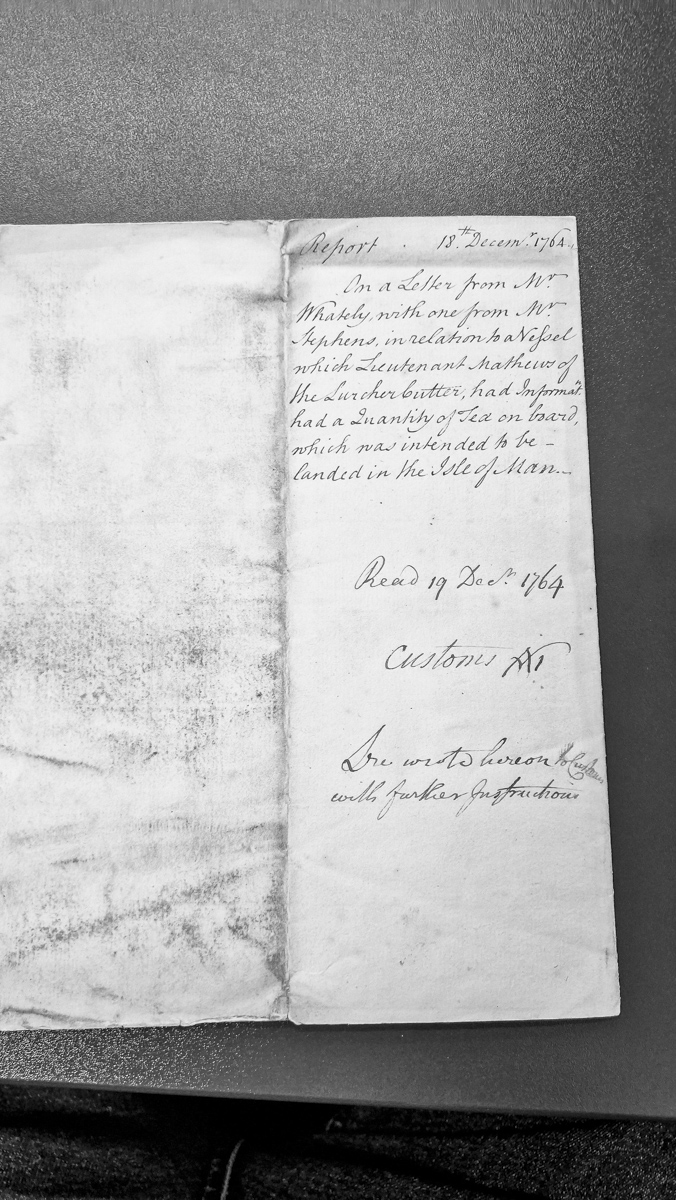 Report . 18th Decemr. 1764.
On a Letter from Mr.
Whately, with one from Mr.
Stephens, in relation to a Vessel
which Lieutenant Mathews of
the Lurcher Cutter, had Informatn.
had a Quantity of Tea on board,
which was intended to be –
landed in the Isle of Man.–
Read 19 Decr. 1764
Customs
wrote hereon to Customs
with further Instructions